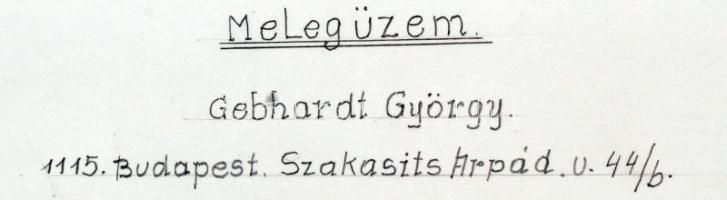 Melegüzem.
Gebhardt György.
1115. Budapest. Szakasits Árpád. u. 44/b.